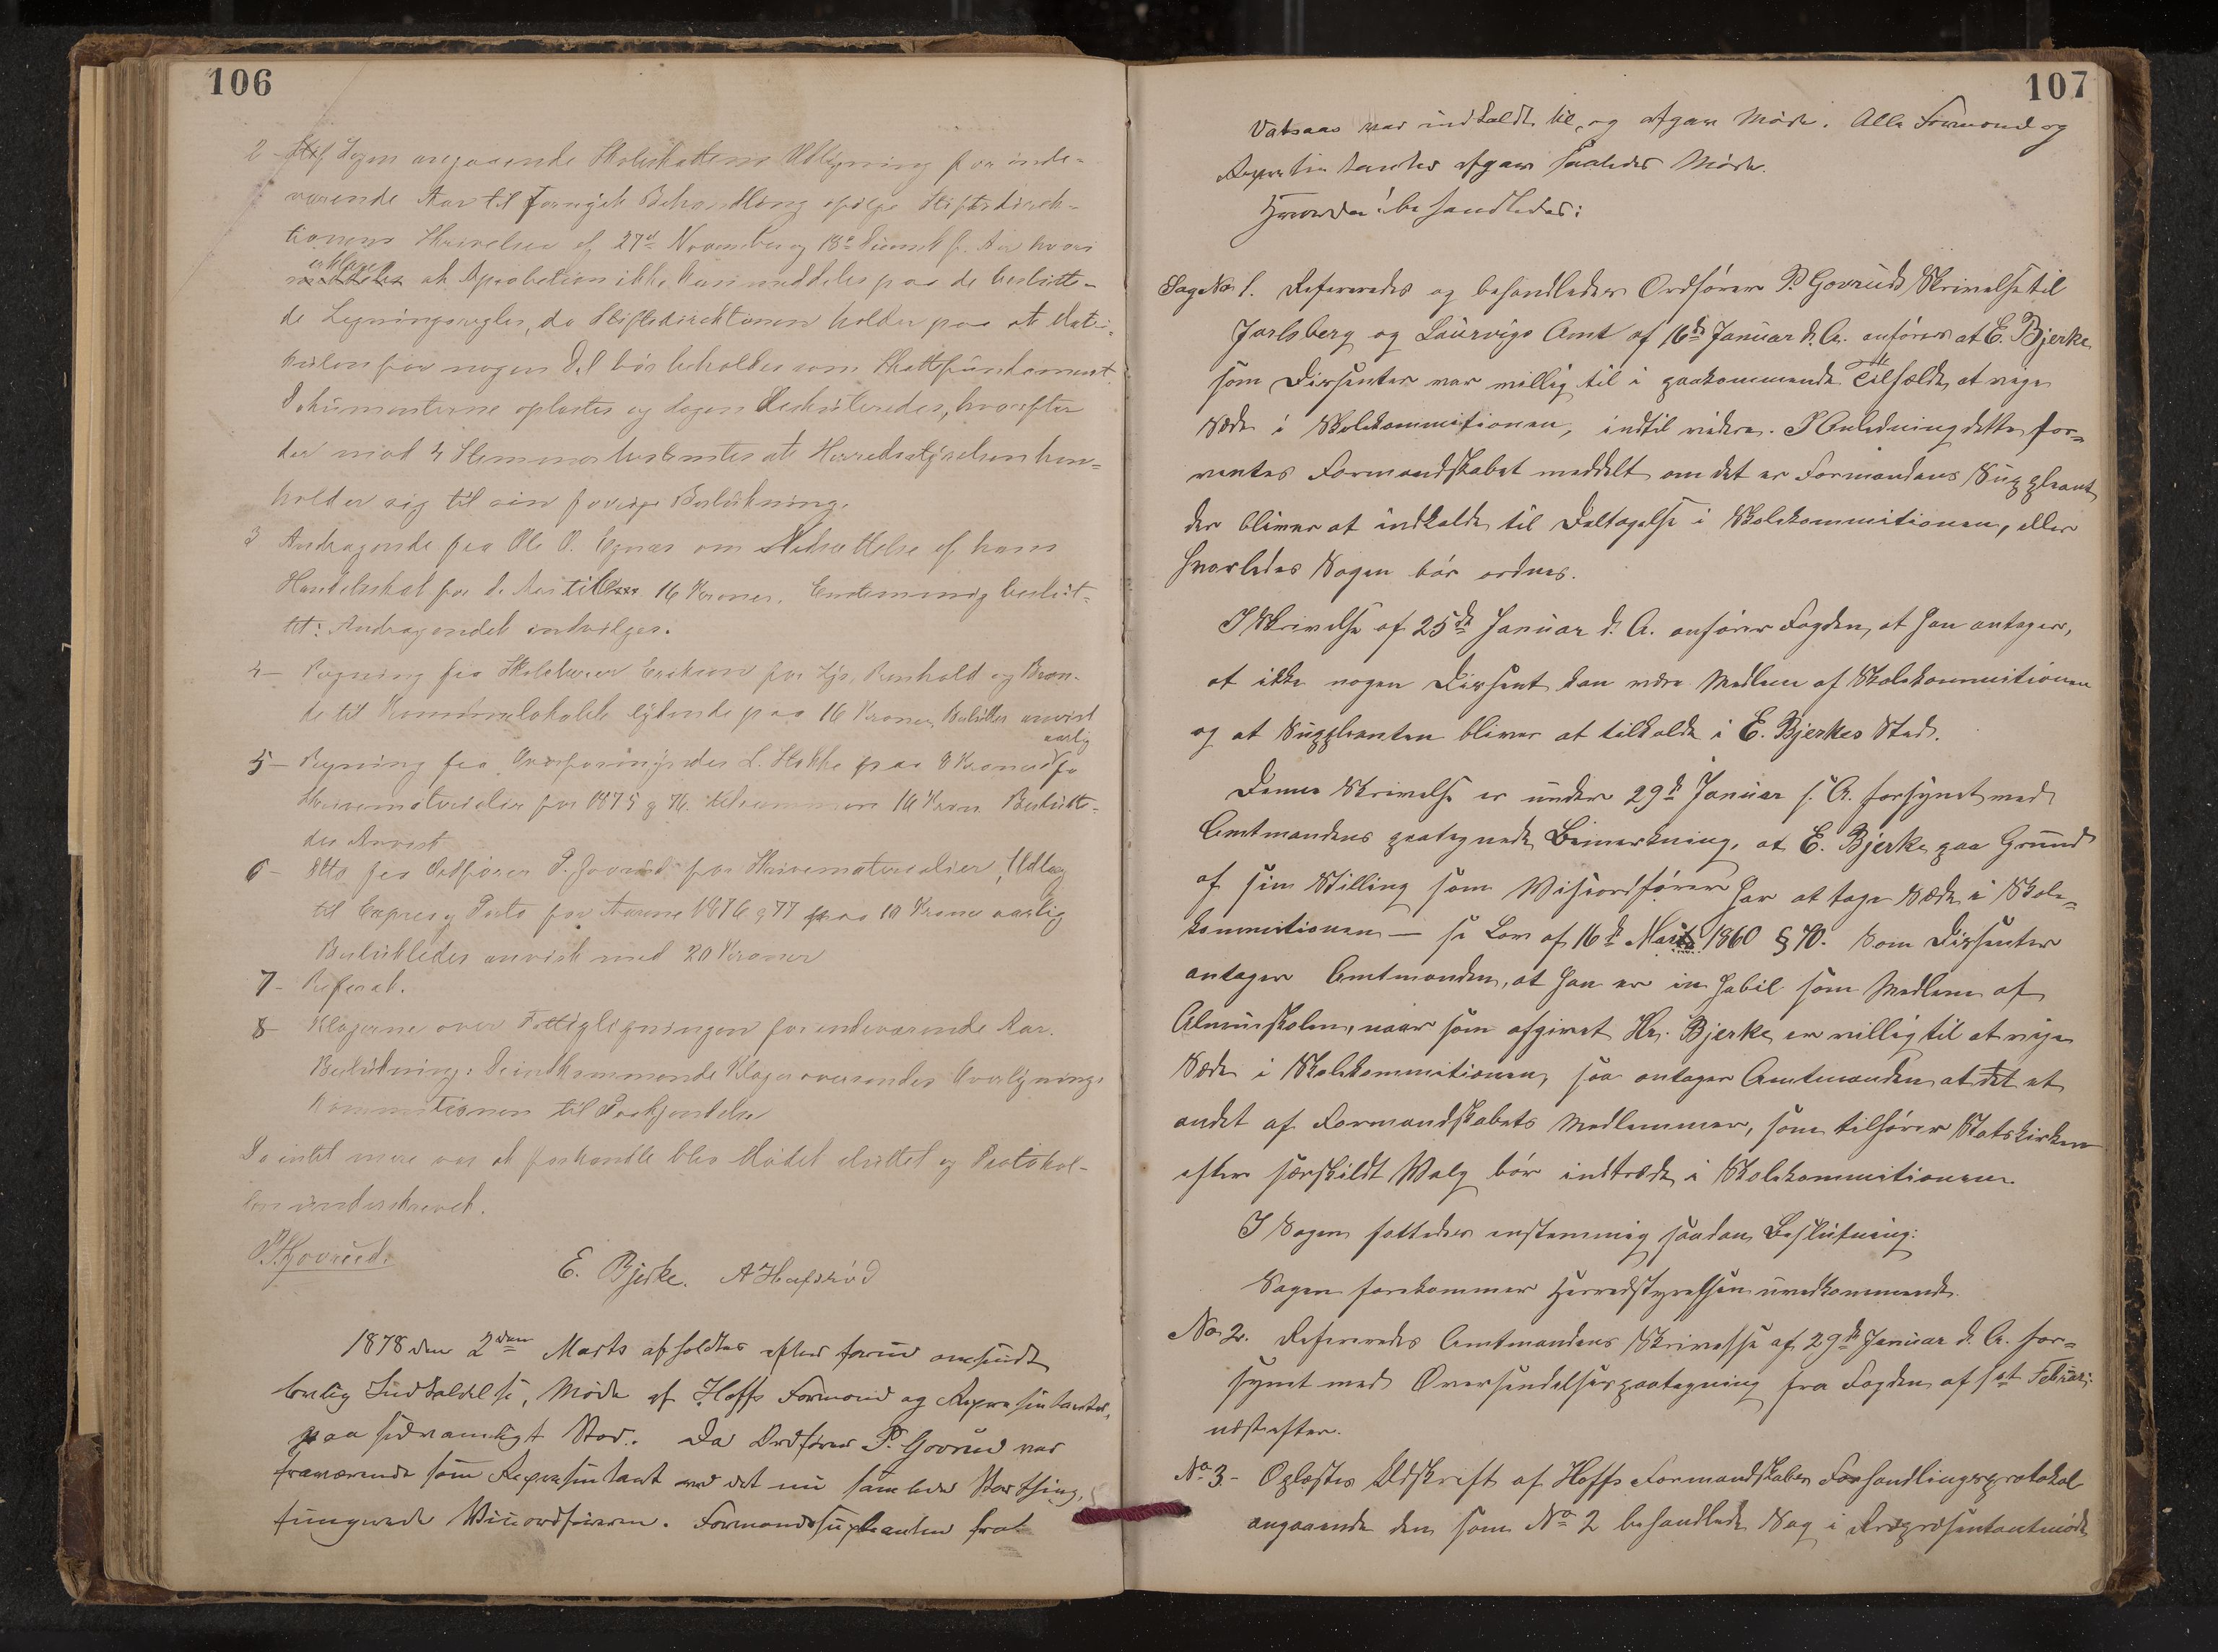 106
2 Sagen angaaende Skoleskattens Udligning for inde-
værende Aar til fornyet Behandling ifølge Stiftsdirek-
tionens Skrivelser af 27de November og 18de f. Aar hvori
erklæres
meddeles at Aprobation ikke kan meddeles paa de beslutte-
de Ligningsregler, da Stiftsdirektionen holder paa at Matri-
kulen for nogen Del bør beholdes som Skattefundament.
Dokumenterne oplæstes og Sagen diskuteredes, hvorefter
der mod 4 Stemmer bestemtes at Herredsstyrelsen hen-
holder sig til sin forrige Beslutning.
3 Andragende fra Ole O. om Nedsættelse af hans
Handelsskat for d. Aar til 16 Kroner. Enstemmig beslut-
tet: Andragendet indvilges.
4 — Regning fra Skolelærer Erikson for Lys, Renhold og Bræn-
de til Kommunelokalet lydende paa 16 Kroner. Besluttes anvist
aarlig
5 — Regning fra L. Hakke paa 8 Kroner for
Skrivematerialier for 1875 g 76. tilsammen 16 Kron. Beslutte-
des Anvist
6 — Dto fra Ordfører P. Govrud for Skrivematerialier, Udlæg
til Expres g Porto for Aarene 1876 g 77 paa 10 Kroner aarlig
Besluttedes anvist med 20 Kroner
7 — Referat.
8 — Klagerne over Fattigligningen for indeværende Aar.
Beslutning: De indkommende Klager oversendes Overlignings-
kommitionen til Paakjendelse
Da intet mere var at forhandle blev Mødet sluttet og Protokol-
len underskrevet.
P. Govrud.
E. Bjerke. A Hafskød
1878 den 2den Marts afholdtes efter forud omsendt
lovlig Indkaldelse, Møde af Hoffs Formænd og Repræsentanter,
paa sædvanligt Sted. Da Ordfører P. Govrud var
fraværende som Repræsentant ved det nu samlede Storthing,
fungerede Viceordføreren. Formandssupleanten fra
107
Vabraas var indkaldt til, og afgav Møde. Alle Formænd og
Repræsentanter afgav saaledes Møde.
Hvorda! behandledes:
Sag No 1. Refereredes og behandledes Ordfører P. Govruds Skrivelse til
Jarlsberg og Laurvigs Amt af 16de Januar d. A. anfører at E. Bjerke
som Dissenter var villig til i paakommende Tilfælde at vige
Sæde i Skolekommitionen, indtil videre. I Anledning dette for-
ventes Formandskabet meddelt om det er Formandens Suppleant
der bliver at indkalde til Deltagelse i Skolekommitionen, eller
hvorledes Sagen bør ordnes.
I Skrivelse af 25de Januar d. A. anfører Fogden, at han antager,
at ikke nogen Dissent kan være Medlem af Skolekommitionen
og at Suppleanten bliver at tilkalde i E. Bjerkes Sted.
Denne Skrivelse er under 29de Januar s. A. forsynet med
Amtmandens paategnede Bemerkning, at E. Bjerke paa Grund
af sin Stilling som Viseordfører har at tage Sæde i Skole-
kommitionen — se Lov af 16de Mai 1860 § 70. Som Dissenter
antager Amtmanden, at han er inhabil som Medlem af
Almuskolen, naar som afgivet Hr. Bjerke er villig til at vige
Sæde i Skolekommitionen, saa antager Amtmanden at det et
andet af Formandskabets Medlemmer, som tilhører Statskirken
efter særskildt Valg bør indtræde i Skolekommitionen.
I Sagen fattedes enstemmig saadan Beslutning:
Sagen forekommer Herredstyrelsen uvedkommende.
No 2. Refereredes Amtmandens Skrivelse af 29de Januar d. A. for-
synet med Oversendelsespaategning fra Fogden af 1st Februar
næstefter.
No 3 - Oplæstes Udskrift af Hoffs Formandskabes Forhandlingsprotokol
angaaende den som No 2 behandlede Sag i Repræsentantmøde